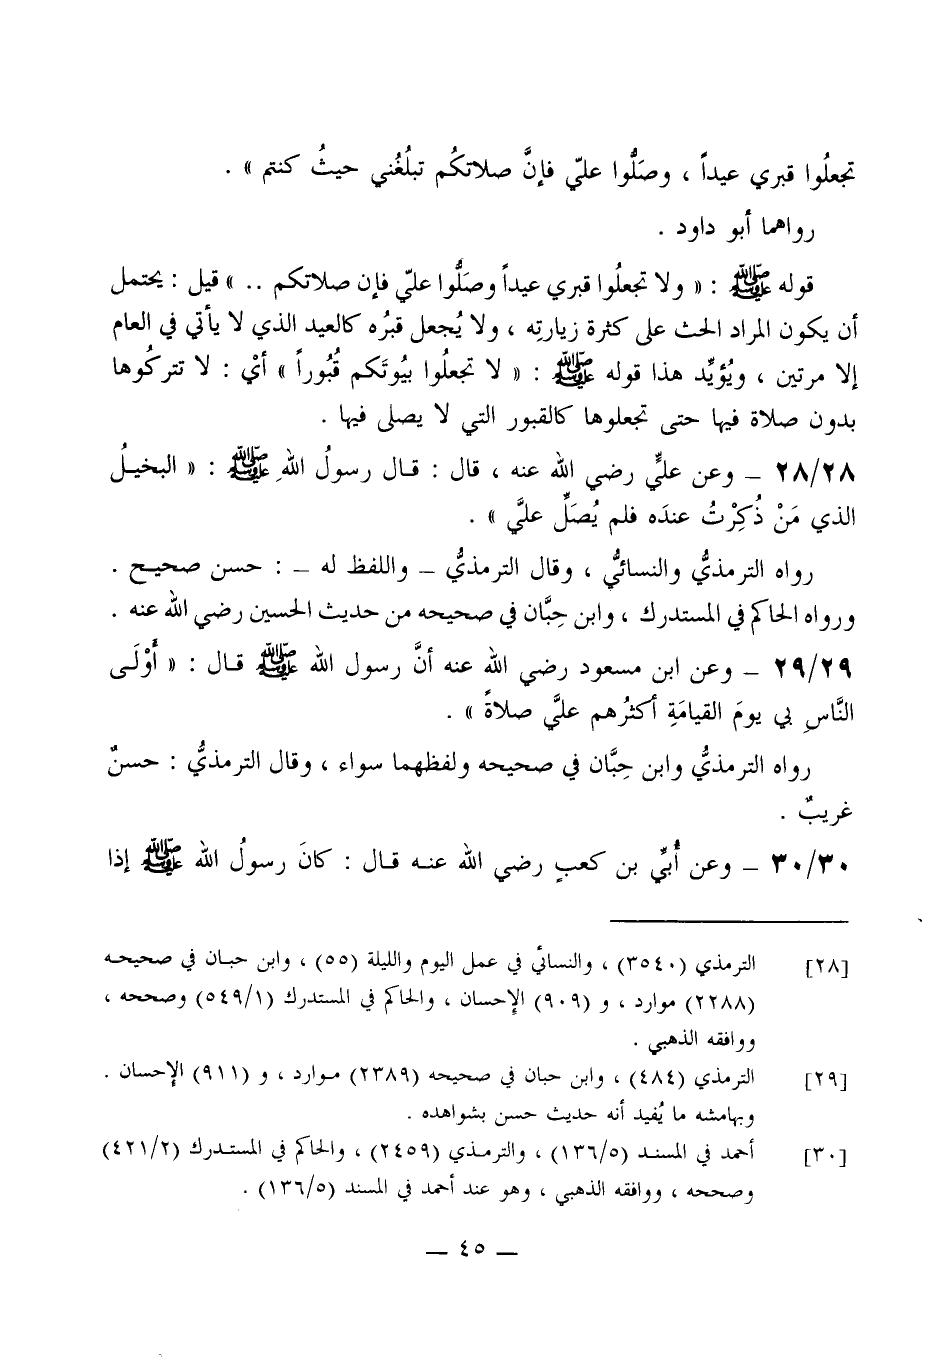 تجعلُوا قبري عيداً ، وصَلُّوا عليّ فإنَّ صلاتكُم تبلُغُني حيثُ كنتم » .
رواهما أبو داود .
قوله ﷺ : « ولا تجعلُوا قبري عيداً وصَلُّوا عليّ فإن صلاتكم .. » قيل : يحتمل
أن يكون المراد الحث على كثرة زيارتِه ، ولا يُجعل قبرُه كالعيد الذي لا يأتي في العام
إلا مرتين ، ويُؤيِّد هذا قوله ﷺ : « لا تجعلُوا بيُوتَكم قُبُوراً » أيْ : لا تتركُوها
بدون صلاة فيها حتى تجعلوها كالقبور التي لا يصلى فيها .
٢٨/٢٨ ــ وعن عليٍّ رضي الله عنه ، قال : قال رسولُ اللهِ ﷺ : « البخيلُ
الذي مَنْ ذُكِرْتُ عندَه فلم يُصَلِّ عليَّ » .
رواه الترمذيُّ والنسائيُّ ، وقال الترمذيُّ ــ واللفظ له ــ : حسن صحيح .
ورواه الحاكم في المستدرك ، وابن حِبَّان في صحيحه من حديث الحسين رضي الله عنه .
٢٩/٢٩ ــ وعن ابن مسعود رضي الله عنه أنَّ رسول الله ﷺ قال : « أَوْلَى
النَّاسِ بي يومَ القيامَةِ أكثرُهم عليَّ صلاةً » .
رواه الترمذيُّ وابن حِبَّان في صحيحه ولفظهما سواء ، وقال الترمذيُّ : حسنٌ
غريبٌ .
٣٠/٣٠ ــ وعن أُبيِّ بن كعبٍ رضي الله عنه قال : كانَ رسولُ الله ﷺ إذا
[٢٨] الترمذي (٣٥٤٠) ، والنسائي في عمل اليوم والليلة (٥٥) ، وابن حبان في صحيحه
(٢٢٨٨) موارد ، و (٩٠٩) الإحسان ، والحاكم في المستدرك (٥٤٩/١) وصححه ،
ووافقه الذهبي .
[٢٩] الترمذي (٤٨٤) ، وابن حبان في صحيحه (٢٣٨٩) موارد ، و (٩١١) الإحسان .
وبهامشه ما يُفيد أنه حديث حسن بشواهده .
[٣٠] أحمد في المسند (١٣٦/٥) ، والترمذي (٢٤٥٩) ، والحاكم في المستدرك (٤٢١/٢)
وصححه ، ووافقه الذهبي ، وهو عند أحمد في المسند (١٣٦/٥) .
ــ ٤٥ ــ